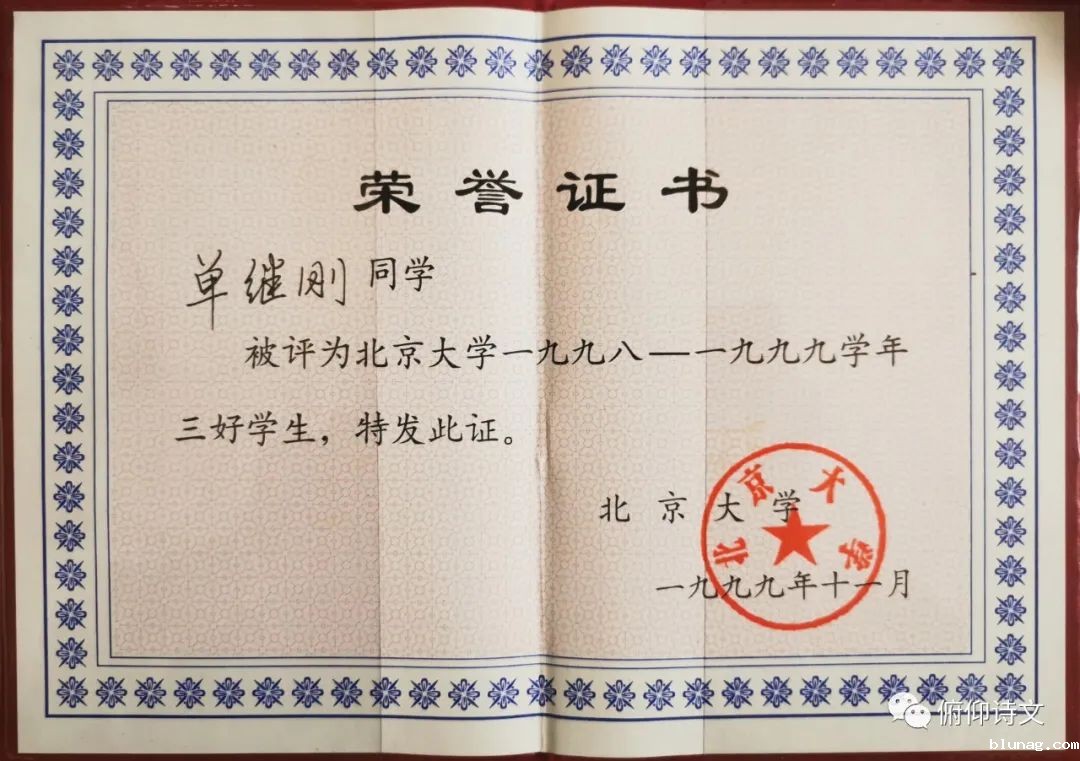 荣誉证书
单继刚 同学
被评为北京大学一九九八—一九九九学年
三好学生，特发此证。
北京大学
一九九九年十一月
北京大学
俯仰诗文
blunag.com